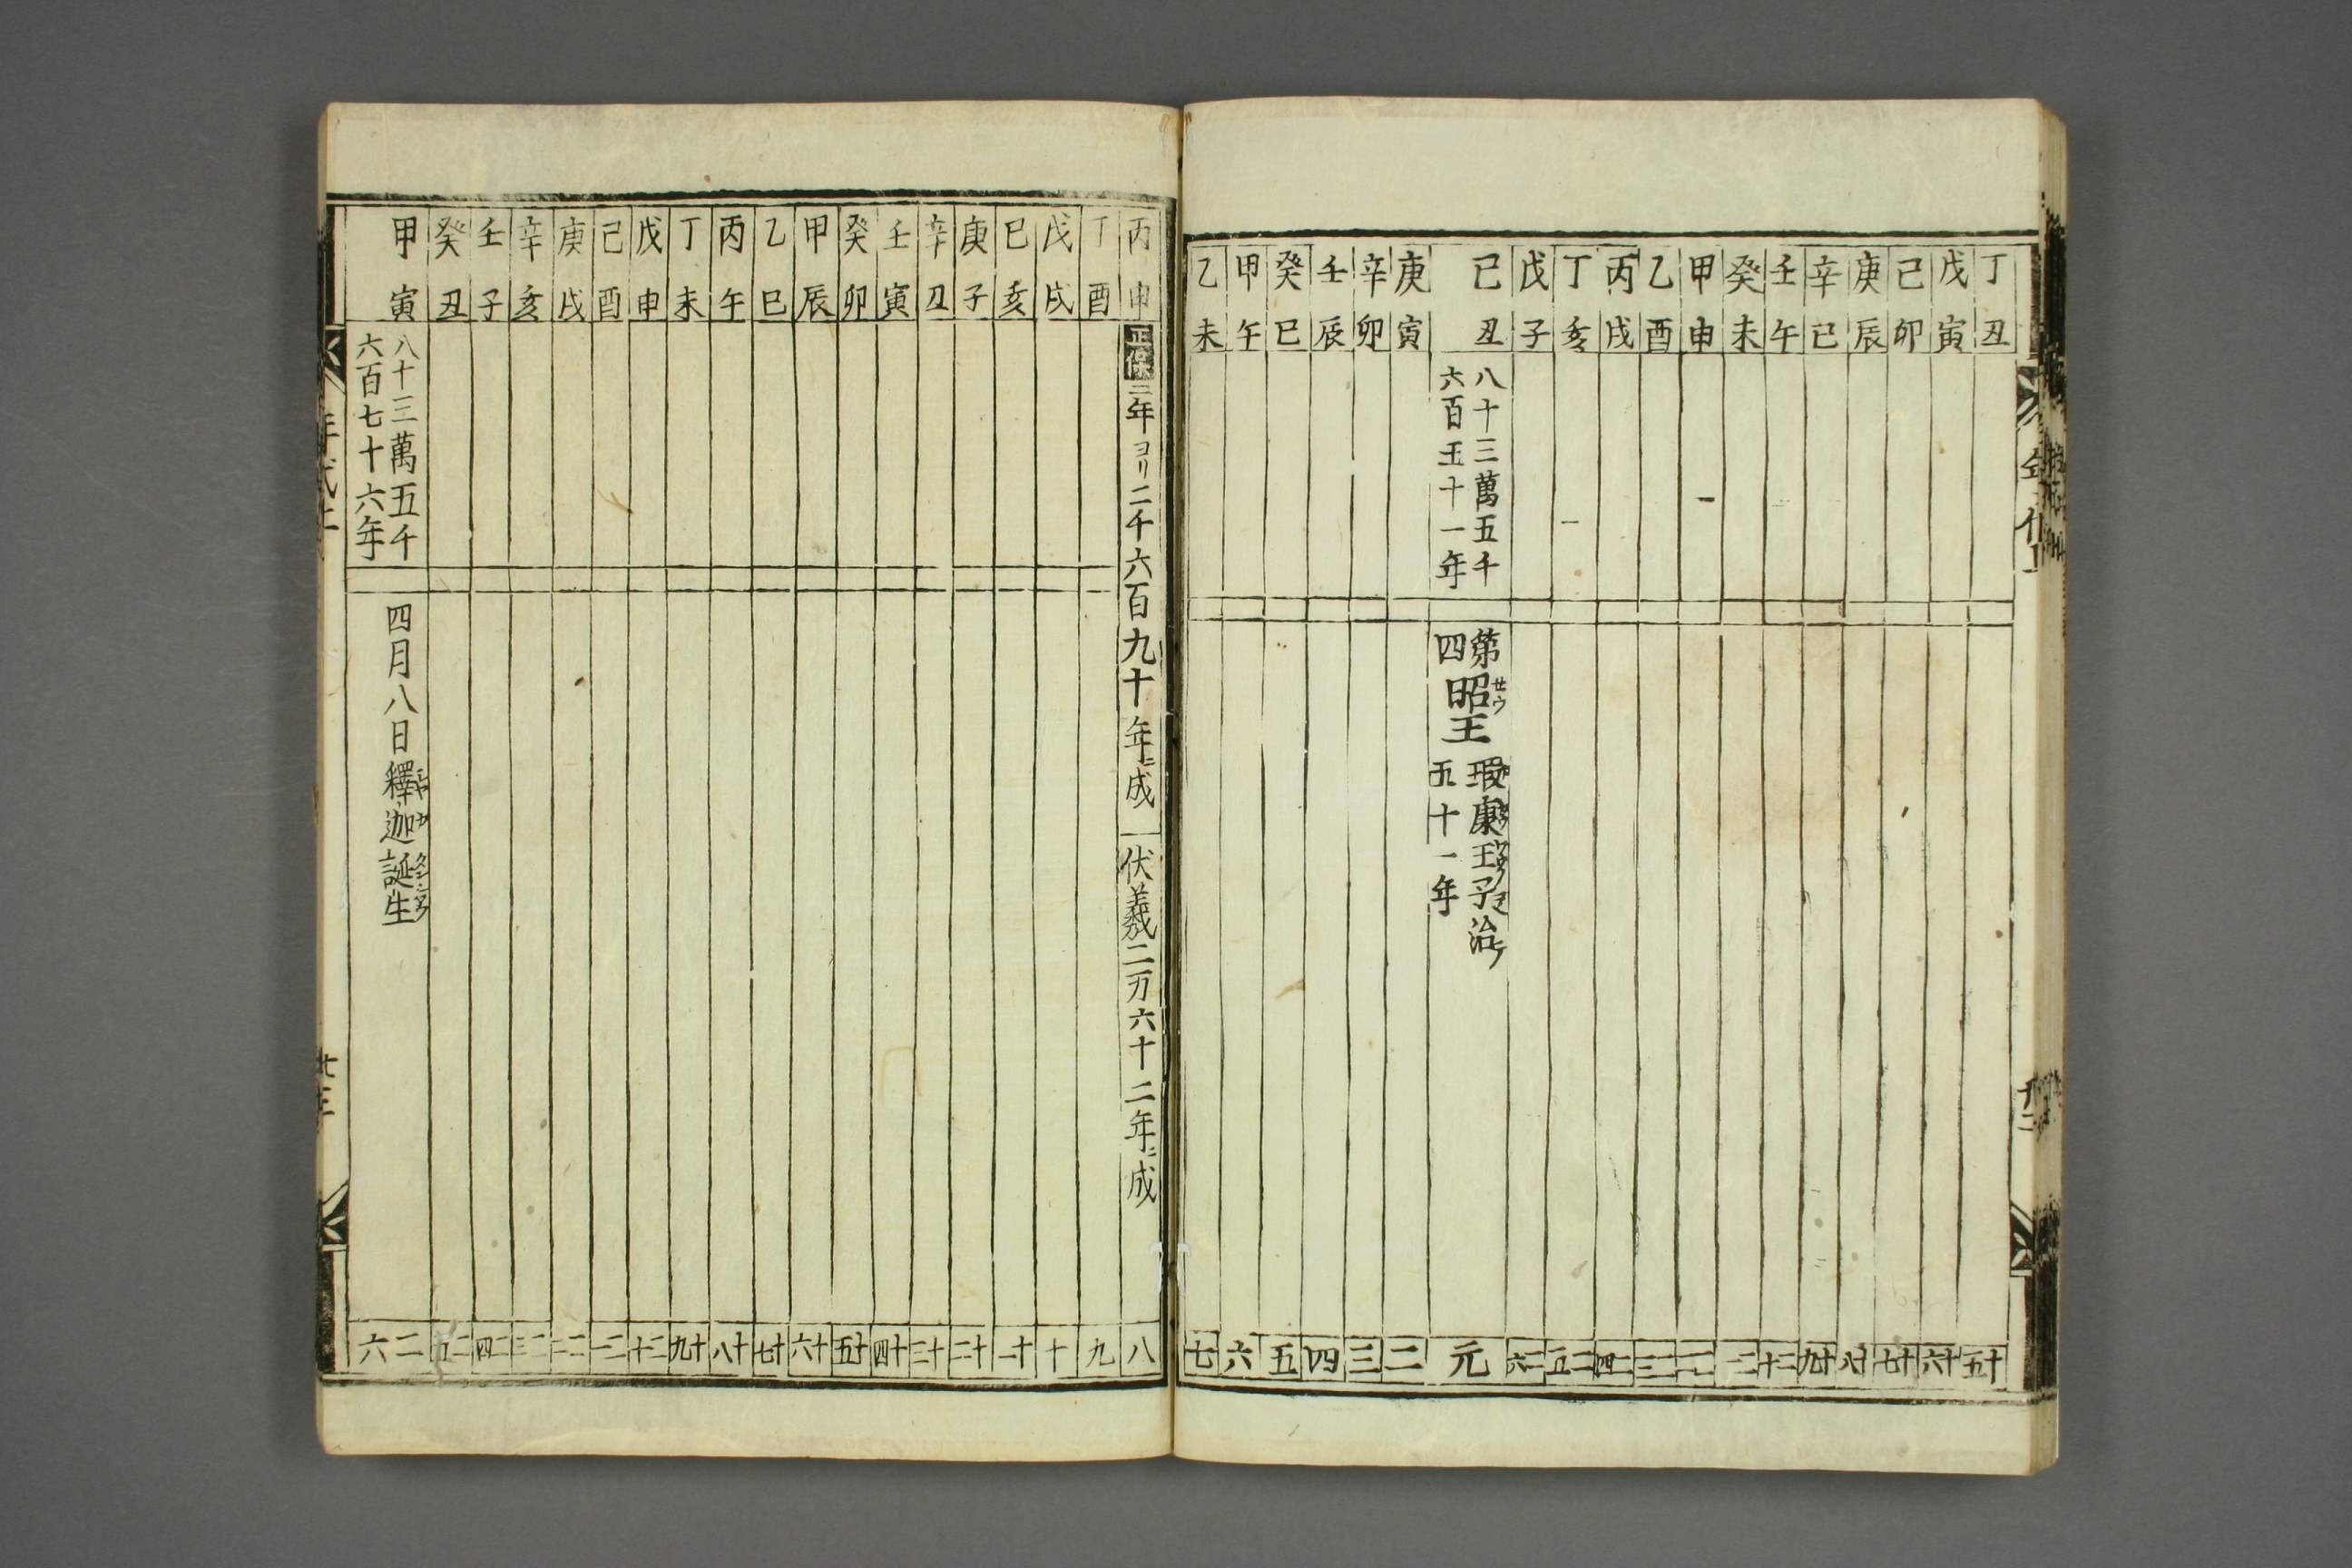 丁丑 十五
戊寅 十六
己卯 十七
庚辰 十八
辛巳 十九
壬午 二十
癸未 二一
甲申 二二
乙酉 二三
丙戌 二四
丁亥 二五
戊子 二六
己丑 八十三萬五千
六百五十一年
第四 昭王 瑕康王子治
五十一年
元
庚寅 二
辛卯 三
壬辰 四
癸巳 五
甲午 六
乙未 七
丙申 正保三年ヨリ二千六百九十年ニ成 伏羲二万六十二年ニ成 八
丁酉 九
戊戌 十
己亥 十一
庚子 十二
辛丑 十三
壬寅 十四
癸卯 十五
甲辰 十六
乙巳 十七
丙午 十八
丁未 十九
戊申 二十
己酉 二一
庚戌 二二
辛亥 二三
壬子 二四
癸丑 二五
甲寅 八十三萬五千
六百七十六年
四月八日釋迦誕生
二六